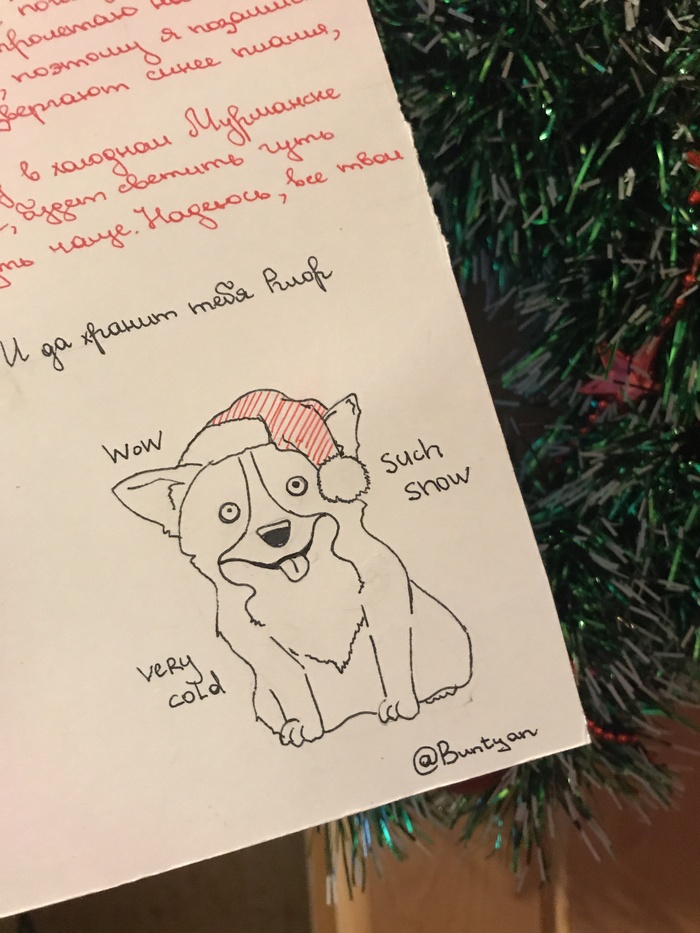 пролетаю
, поэтому я
двергают синее пламя,
в холодном Мурманске
, будет светить чуть
ть чаще. Надеюсь, все твои
И да хранит тебя Рилор
WoW
such
snow
very
cold
@Buntyan